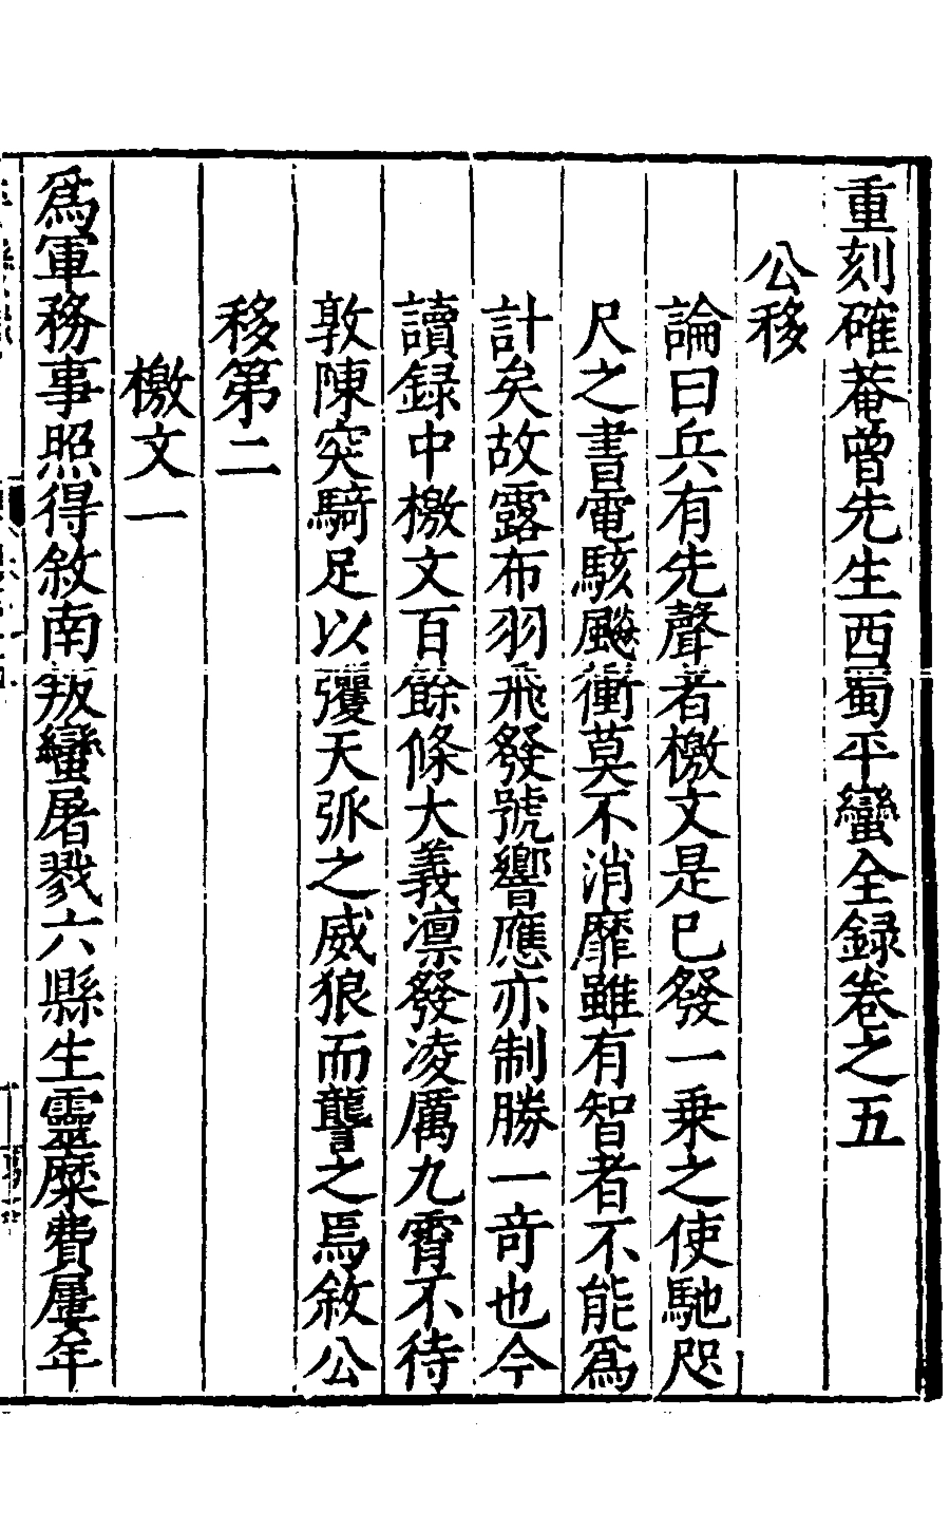 重刻確菴曾先生西蜀平蠻全録卷之五
公移
論曰兵有先聲者檄文是已發一乗之使馳咫
尺之書電駭飈衝莫不消靡雖有智者不能爲
計矣故露布羽飛發號響應亦制勝一竒也今
讀録中檄文百餘條大義凛發凌厲九霄不待
敦陳突騎足以彏天弧之威狼而讋之焉敘公
移第二
檄文一
爲軍務事照得敘南叛蠻屠戮六縣生靈糜費屢年